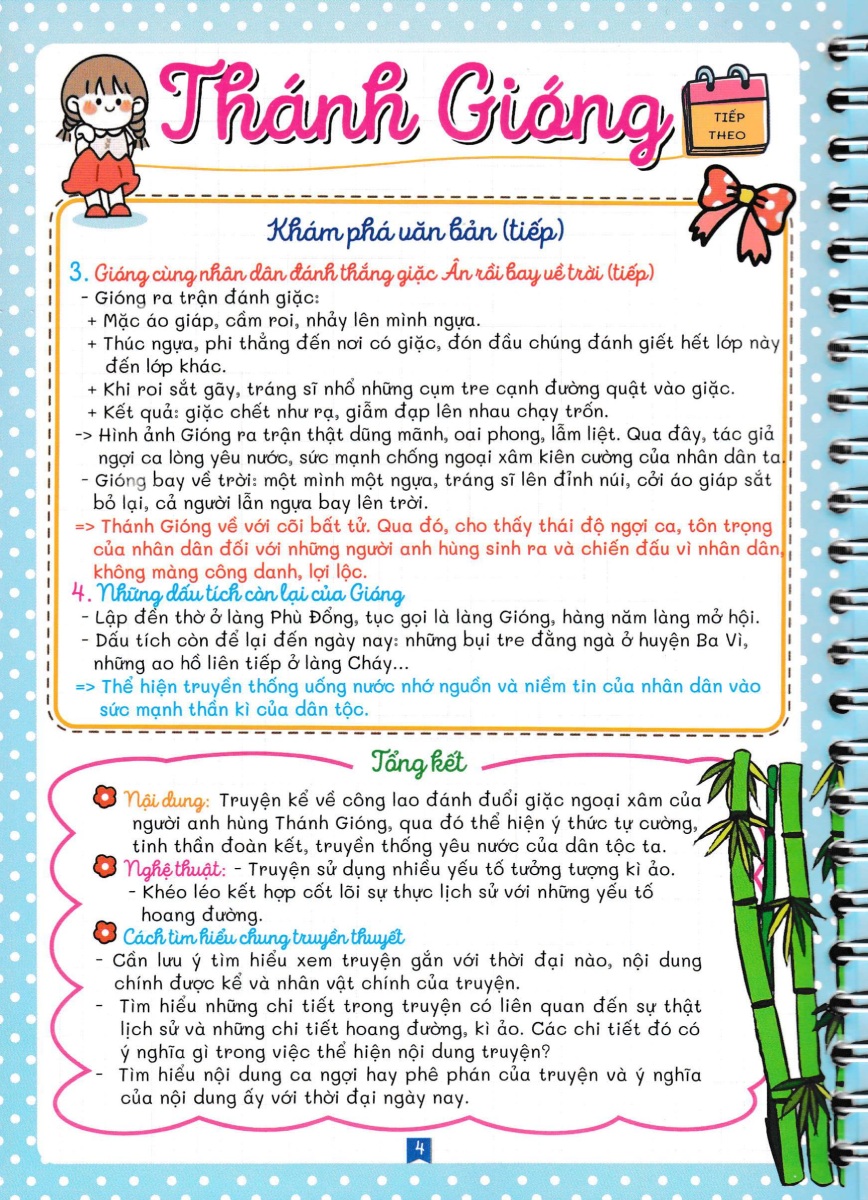 Thánh Gióng
TIẾP
THEO
Khám phá văn bản (tiếp)
3. Gióng cùng nhân dân đánh thắng giặc Ân rồi bay về trời (tiếp)
- Gióng ra trận đánh giặc:
+ Mặc áo giáp, cầm roi, nhảy lên mình ngựa.
+ Thúc ngựa, phi thẳng đến nơi có giặc, đón đầu chúng đánh giết hết lớp này
đến lớp khác.
+ Khi roi sắt gãy, tráng sĩ nhổ những cụm tre cạnh đường quật vào giặc.
+ Kết quả: giặc chết như rạ, giẫm đạp lên nhau chạy trốn.
-> Hình ảnh Gióng ra trận thật dũng mãnh, oai phong, lẫm liệt. Qua đây, tác giả
ngợi ca lòng yêu nước, sức mạnh chống ngoại xâm kiên cường của nhân dân ta.
- Gióng bay về trời: một mình một ngựa, tráng sĩ lên đỉnh núi, cởi áo giáp sắt
bỏ lại, cả người lẫn ngựa bay lên trời.
=> Thánh Gióng về với cõi bất tử. Qua đó, cho thấy thái độ ngợi ca, tôn trọng
của nhân dân đối với những người anh hùng sinh ra và chiến đấu vì nhân dân,
không màng công danh, lợi lộc.
4. Những dấu tích còn lại của Gióng
- Lập đền thờ ở làng Phù Đổng, tục gọi là làng Gióng, hàng năm làng mở hội.
- Dấu tích còn để lại đến ngày nay: những bụi tre đằng ngà ở huyện Ba Vì,
những ao hồ liên tiếp ở làng Cháy...
=> Thể hiện truyền thống uống nước nhớ nguồn và niềm tin của nhân dân vào
sức mạnh thần kì của dân tộc.
Tổng kết
Nội dung: Truyện kể về công lao đánh đuổi giặc ngoại xâm của
người anh hùng Thánh Gióng, qua đó thể hiện ý thức tự cường,
tinh thần đoàn kết, truyền thống yêu nước của dân tộc ta.
Nghệ thuật: - Truyện sử dụng nhiều yếu tố tưởng tượng kì ảo.
- Khéo léo kết hợp cốt lõi sự thực lịch sử với những yếu tố
hoang đường.
Cách tìm hiểu chung truyền thuyết
- Cần lưu ý tìm hiểu xem truyện gắn với thời đại nào, nội dung
chính được kể và nhân vật chính của truyện.
- Tìm hiểu những chi tiết trong truyện có liên quan đến sự thật
lịch sử và những chi tiết hoang đường, kì ảo. Các chi tiết đó có
ý nghĩa gì trong việc thể hiện nội dung truyện?
- Tìm hiểu nội dung ca ngợi hay phê phán của truyện và ý nghĩa
của nội dung ấy với thời đại ngày nay.
4